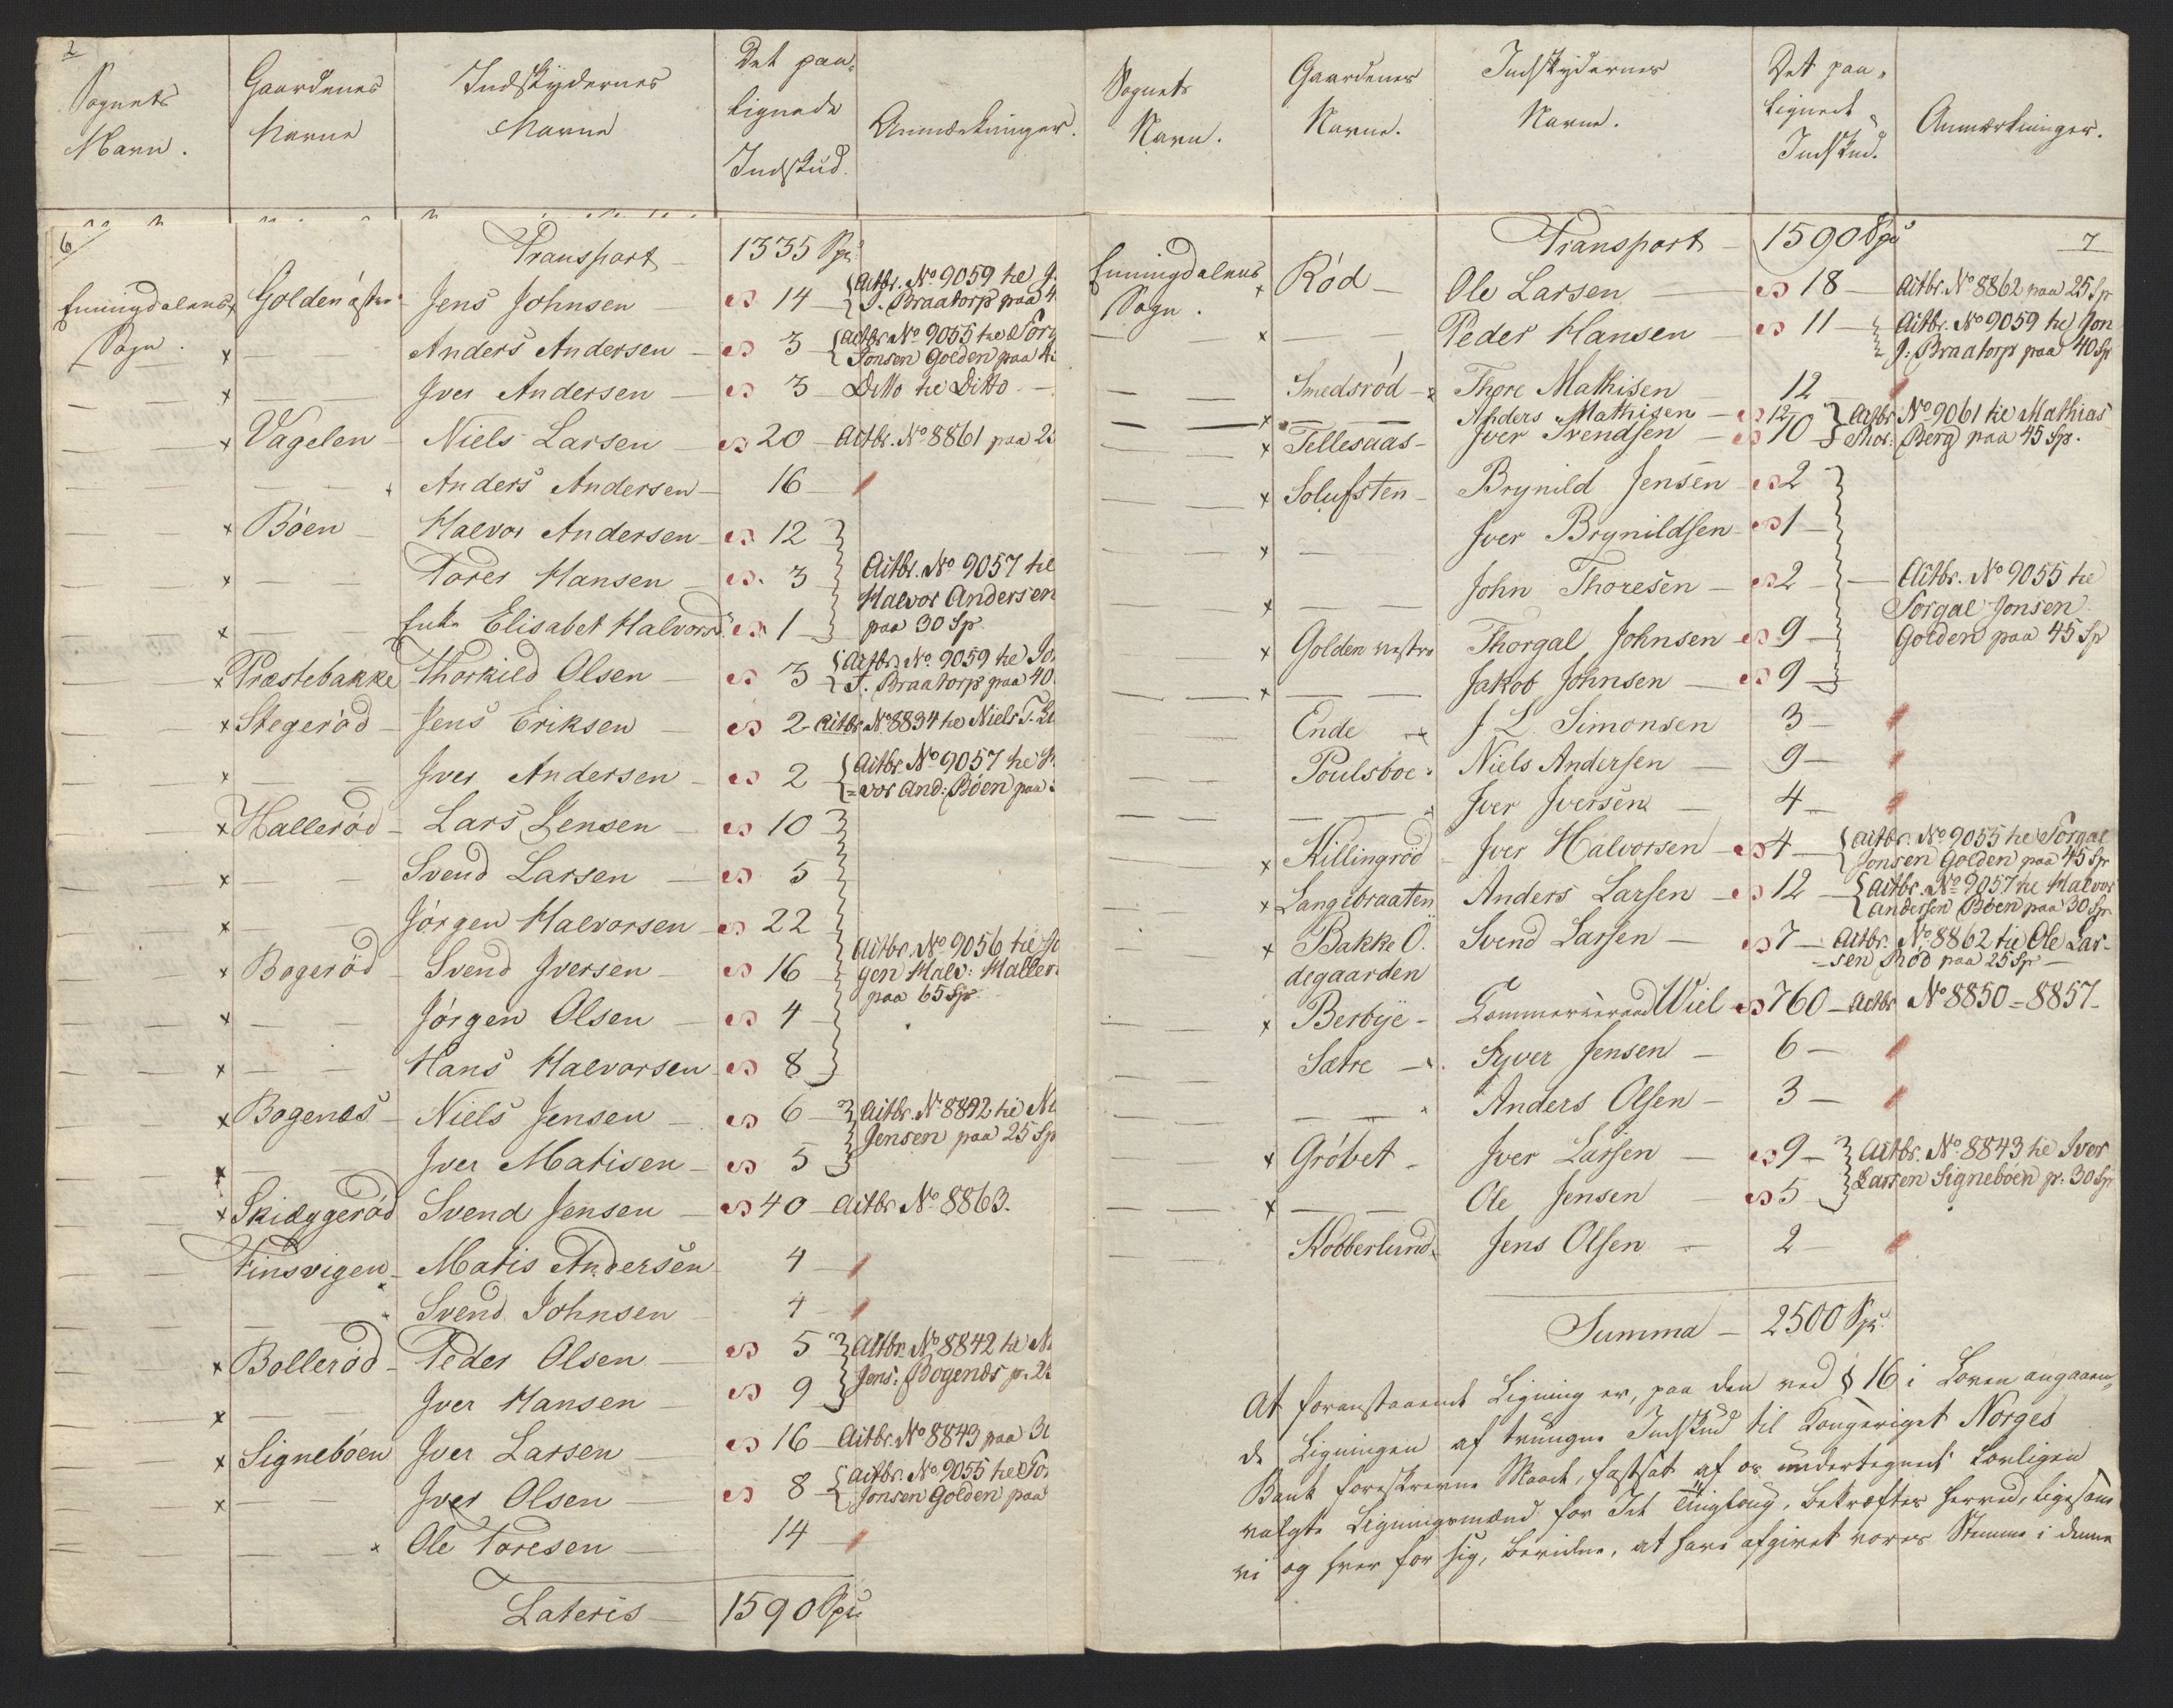 2
Sognets
Navn.
Gaardenes
Navne
Indskydernes
Navne
Det paa-
lignede
Indskud.
Anmærkninger.
6
Transport 1335 Spd
Enningdalens Golden østre Jens Johnsen 14 Actbr. No 9059 til J.
J. Braatorp paa 4
Sogn. Anders Andersen 3 Actbr No 9055 til Torg
Jonsen Golden paa 45
Iver Andersen 3 Ditto til Ditto
Vagelen Niels Larsen 20 Actbr. No 8861 paa 25
Anders Andersen 16
Böen Halvor Andersen 12
Tores Hansen 3 Actbr. No 9057 til
Halvor Andersen
Enke Elisabet Halvorsd. 1 paa 30 Sp
Præstebakke Thorkild Olsen 3 Actbr. No 9059 til Jo
J. Braatorp paa 40
Stegeröd Jens Eriksen 2 Actbr. No 8834 til Niels T.
Iver Andersen 2 Actbr. No 9057 til H
=vor And: Böen paa
Halleröd Lars Jensen 10
Svend Larsen 5
Jörgen Halvorsen 22
Actbr. No 9056 til Jö
Bogeröd Svend Iversen 16 gen Halv: Haller
paa 65 Sp.
Jörgen Olsen 4
Hans Halvorsen 8
Bogenæs Niels Jensen 6 Actbr. No 8842 til Ni
Jensen paa 25 Sp
Iver Matisen 5
Skiæggeröd Svend Jensen 40 Actbr No 8863.
Finsvigen Matis Andersen 4
Svend Johnsen 4
Bolleröd Peder Olsen 5 Actbr. No 8842 til Ni
Jens: Bogenæs p. 25
Iver Hansen 9
Signeböen Iver Larsen 16 Actbr. No 8843 paa 30
Iver Olsen 8 Actbr. No 9055 til Tor
Jonsen Golden paa
Ole Toresen 14
Lateris 1590 Spd
Sognets
Navn.
Gaardenes
Navne.
Indskydernes
Navne.
Det paa-
lignede
Indskud.
Anmærkninger.
7
Transport 1590 Spd
Enningdalens Röd Ole Larsen 18 Actbr. No 8862 paa 25 Sp
Sogn. Peder Hansen 11 Actbr. No 9059 til Jon
J: Braatorp paa 40 Sp
Smedsröd Thore Mathisen 12
Anders Mathisen 12 Actbr No 9061 til Mathias
Tellesaas Iver Svendsen 10 Thor: Berg paa 45 Sp.
Solufsten Brynild Jensen 2
Iver Brynildsen 1
John Thoresen 2 Actbr. No 9055 til
Torgal Jonsen
Golden vestre Thorgal Johnsen 9 Golden paa 45 Sp
Jakob Johnsen 9
Ende J L Simonsen 3
Poulsböe Niels Andersen 9
Iver Iversen 4
Killingröd Iver Halvorsen 4 Actbr. No 9055 til Torgal
Jonsen Golden paa 45 Sp
Langebraaten Anders Larsen 12 Actbr. No 9057 til Halvor
Andersen Böen paa 30 Sp
Bakke Ö. Svend Larsen 7 Actbr. No 8862 til Ole Lar-
degaarden -sen Röd paa 25 Sp
Berbye Commerceraad Wiel 760 Actbr No 8850 = 8857
Sætre Syver Jensen 6
Anders Olsen 3
Gröbet Iver Larsen 9 Actbr. No 8843 til Iver
Larsen Signeböen p. 30 Sp
Ole Jensen 5
Kobberlund Jens Olsen 2
Summa 2500 Spd.
At foranstaaende Ligning er, paa den ved § 16 i Loven angaaen-
de Ligningen af tvungne Indskud til Kongeriget Norges
Bank foreskrevne Maade, fastsat af os undertegnede lovligen
valgte Ligningsmænd for Id Tinglaug, bekræftes herved, ligesom
vi og hver for sig, bevidne, at have afgivet vores Stemme i denne